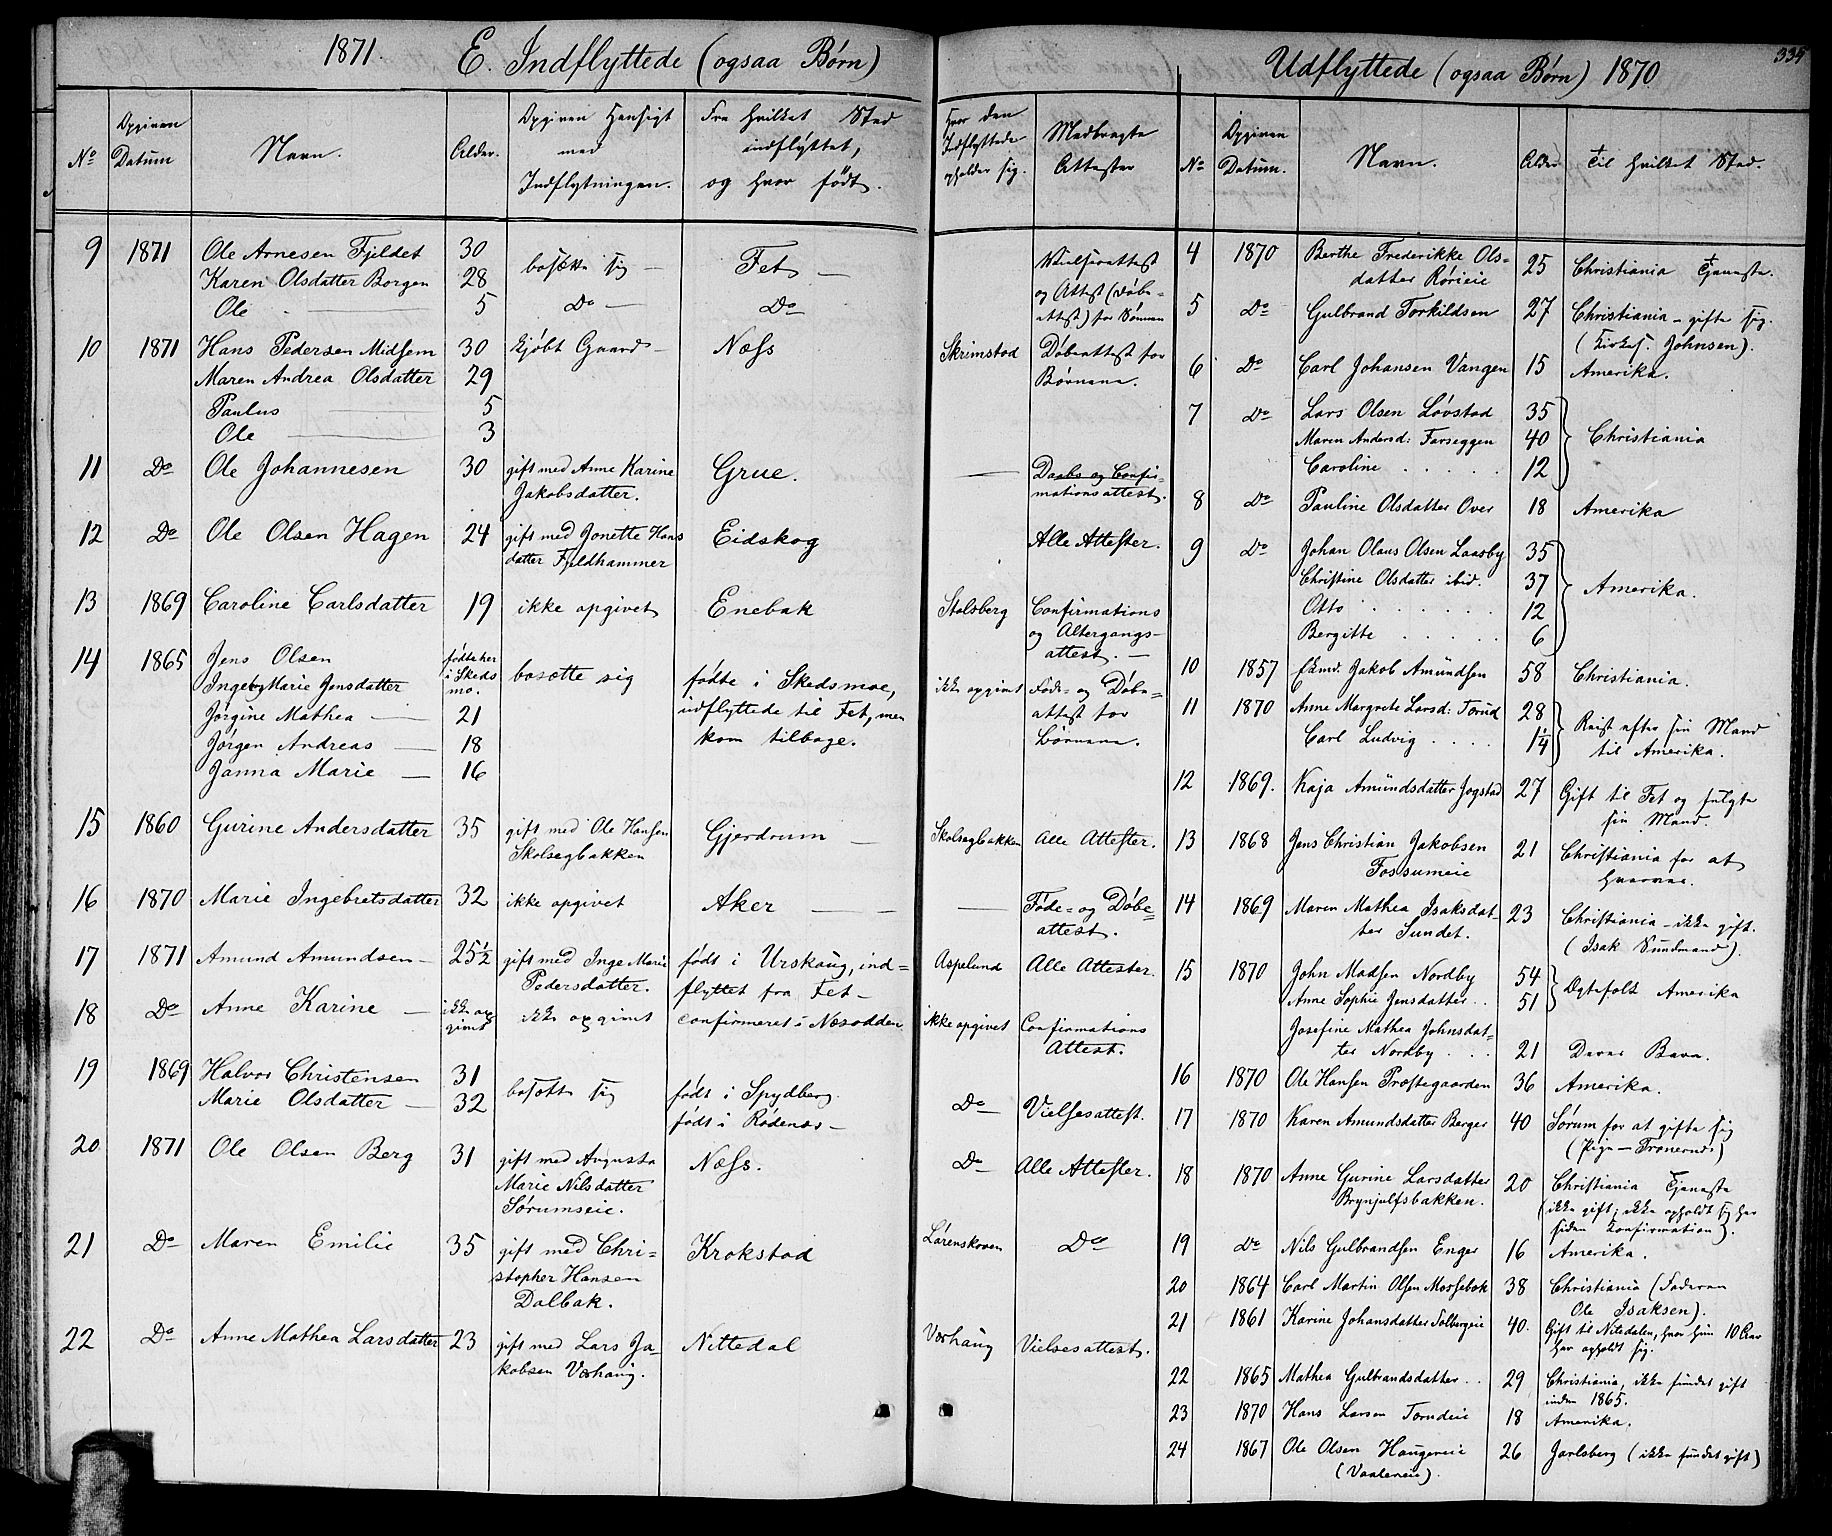 1871. E. Indflyttede (ogsaa Børn)
No Opgiven Datum Navn. Alder. Opgiven Hensigt med Indflytningen. Fra hvilket Sted indflyttet, og hvor født. Hvor den Indflyttede opholder sig. Medbragte Attester
9 1871 Ole Arnesen Fjeldet 30 bosætte sig — Fet — Vielsesattest
Karen Olsdatter Borgen 28 og Attest (Døbe-
Ole 5 Do — Do attest) for Sønnen
10 1871 Hans Pedersen Midsem 30 kjøbt Gaard — Næss Skrimstad Døbeattest for
Maren Andrea Olsdatter 29 Børnene.
Paulus 5
Ole 3
11 Do Ole Johannesen 30 gift med Anne Karine Grue. — Daabs og Confir-
Jakobsdatter. mationsattest.
12 Do Ole Olsen Hagen 24 gift med Jonette Hans Eidskog Alle Attester.
datter Fjeldhammer
13 1869 Caroline Carlsdatter 19 ikke opgivet Enebak Stolsberg Confirmations
og Altergangs-
attest. —
14 1865 Jens Olsen fødte her bosætte sig fødte i Skedsmoe, ikke opgivet Føde- og Døbe-
Ingeb Marie Jensdatter i Skeds mo. udflyttede til Fet, men attest for
Jørgine Mathea — 21 kom tilbage. Børnene.
Jørgen Andreas — 18
Janna Marie — 16
15 1860 Gurine Andersdatter 35 gift med Ole Hansen Gjerdrum — Skolsegbakken Alle Attester.
Skolsegbakken
16 1870 Marie Ingebretsdatter 32 ikke opgivet Aker — — Føde- og Døbe-
attest.
17 1871 Amund Amundsen — 25½ gift med Inge Marie født i Urskoug, ind- Aspelund Alle Attester.
Pedersdatter. flyttet fra Fet —
18 Do Anne Karine — ikke op givet ikke opgivet confirmeret i Næsodden ikke opgivet Confirmations
Attest.
19 1869 Halvor Christensen 31 bosatt sig født i Spydberg. Do — Vielsesattest.
Marie Olsdatter — 32 født i Rødenæs —
20 1871 Ole Olsen Berg 31 gift med Augusta Næss. Do — Alle Attester.
Marie Nilsdatter
Sørumseie.
21 Do Maren Emilie 35 gift med Chri- Krokstad Lørenskoven Do
stopher Hansen
Dalbak.
22 Do Anne Mathea Larsdatter 23 gift med Lars Ja- Nittedal Vorhaug Vielsesattest.
kobsen Vorhaug.
Udflyttede (ogsaa Børn) 1870. 334
No Opgiven Datum. Navn. Alder Til hvilket Sted.
4 1870 Berthe Frederikke Ols-
datter Rørieie 25 Christiania Tjeneste.
5 Do Gulbrand Torkildsen 27 Christiania — gifte sig.
(Kirkes. Johnsen).
6 Do Carl Johansen Vangen 15 Amerika.
7 Do Lars Olsen Løvstad 35
Maren Andersd: Farseggen 40 Christiania
Caroline . . . . . 12
8 Do Pauline Olsdatter Over 18 Amerika
9 Do Johan Olaus Olsen Laasby 35
Christine Olsdatter ibid. 37 Amerika.
Otto . . . . . 12
Bergitte . . . . . 6
10 1857 Ekmd. Jakob Amundsen 58 Christiania.
11 1870 Anne Margrete Larsd: Torud 28 Reist efter sin Mand
Carl Ludvig . . . . 1¼ til Amerika.
12 1869. Kaja Amundsdatter Jogstad 27 Gift til Fet og fulgte
sin Mand.
13 1868 Jens Christian Jakobsen 21 Christiania for at
Fossumeie hverves.
14 1869 Maren Mathea Isaksdat- 23 Christiania — ikke gift.
ter Sundet. (Isak Sundmand).
15 1870 John Madsen Nordby 54 Egtefolk Amerika
Anne Sophie Jensdatter . . 51
Josefine Mathea Johnsdat-
ter Nordby . . . 21 Deres Barn.
16 1870 Ole Hansen Præstegaarden 36 Amerika.
17 1870 Karen Amundsdatter Berger 40 Sørum for at gifte sig
(Pige — )
18 1870 Anne Gurine Larsdatter 20 Christiania Tjeneste
Brynjulfsbakken. (ikke gift; ikke opholdt sig her
siden Konfirmation).
19 Do Nils Gulbrandsen Enger 16 Amerika.
20 1864 Carl Martin Olsen Morsebak 38 Christiania (Faderen
Ole Isaksen).
21 1861 Karine Johansdatter Solbergeie 40. Gift til Nitedalen, hvor hun 10 Aar
har opholdt sig.
22 1865 Mathea Gulbrandsdatter . . 29 Christiania, ikke fundet gift
inden 1865.
23 1870 Hans Larsen Torudeie 18 Amerika.
24 1867 Ole Olsen Haugereie 26 Jarlsberg (ikke fundet gift)
(Vaalereie).